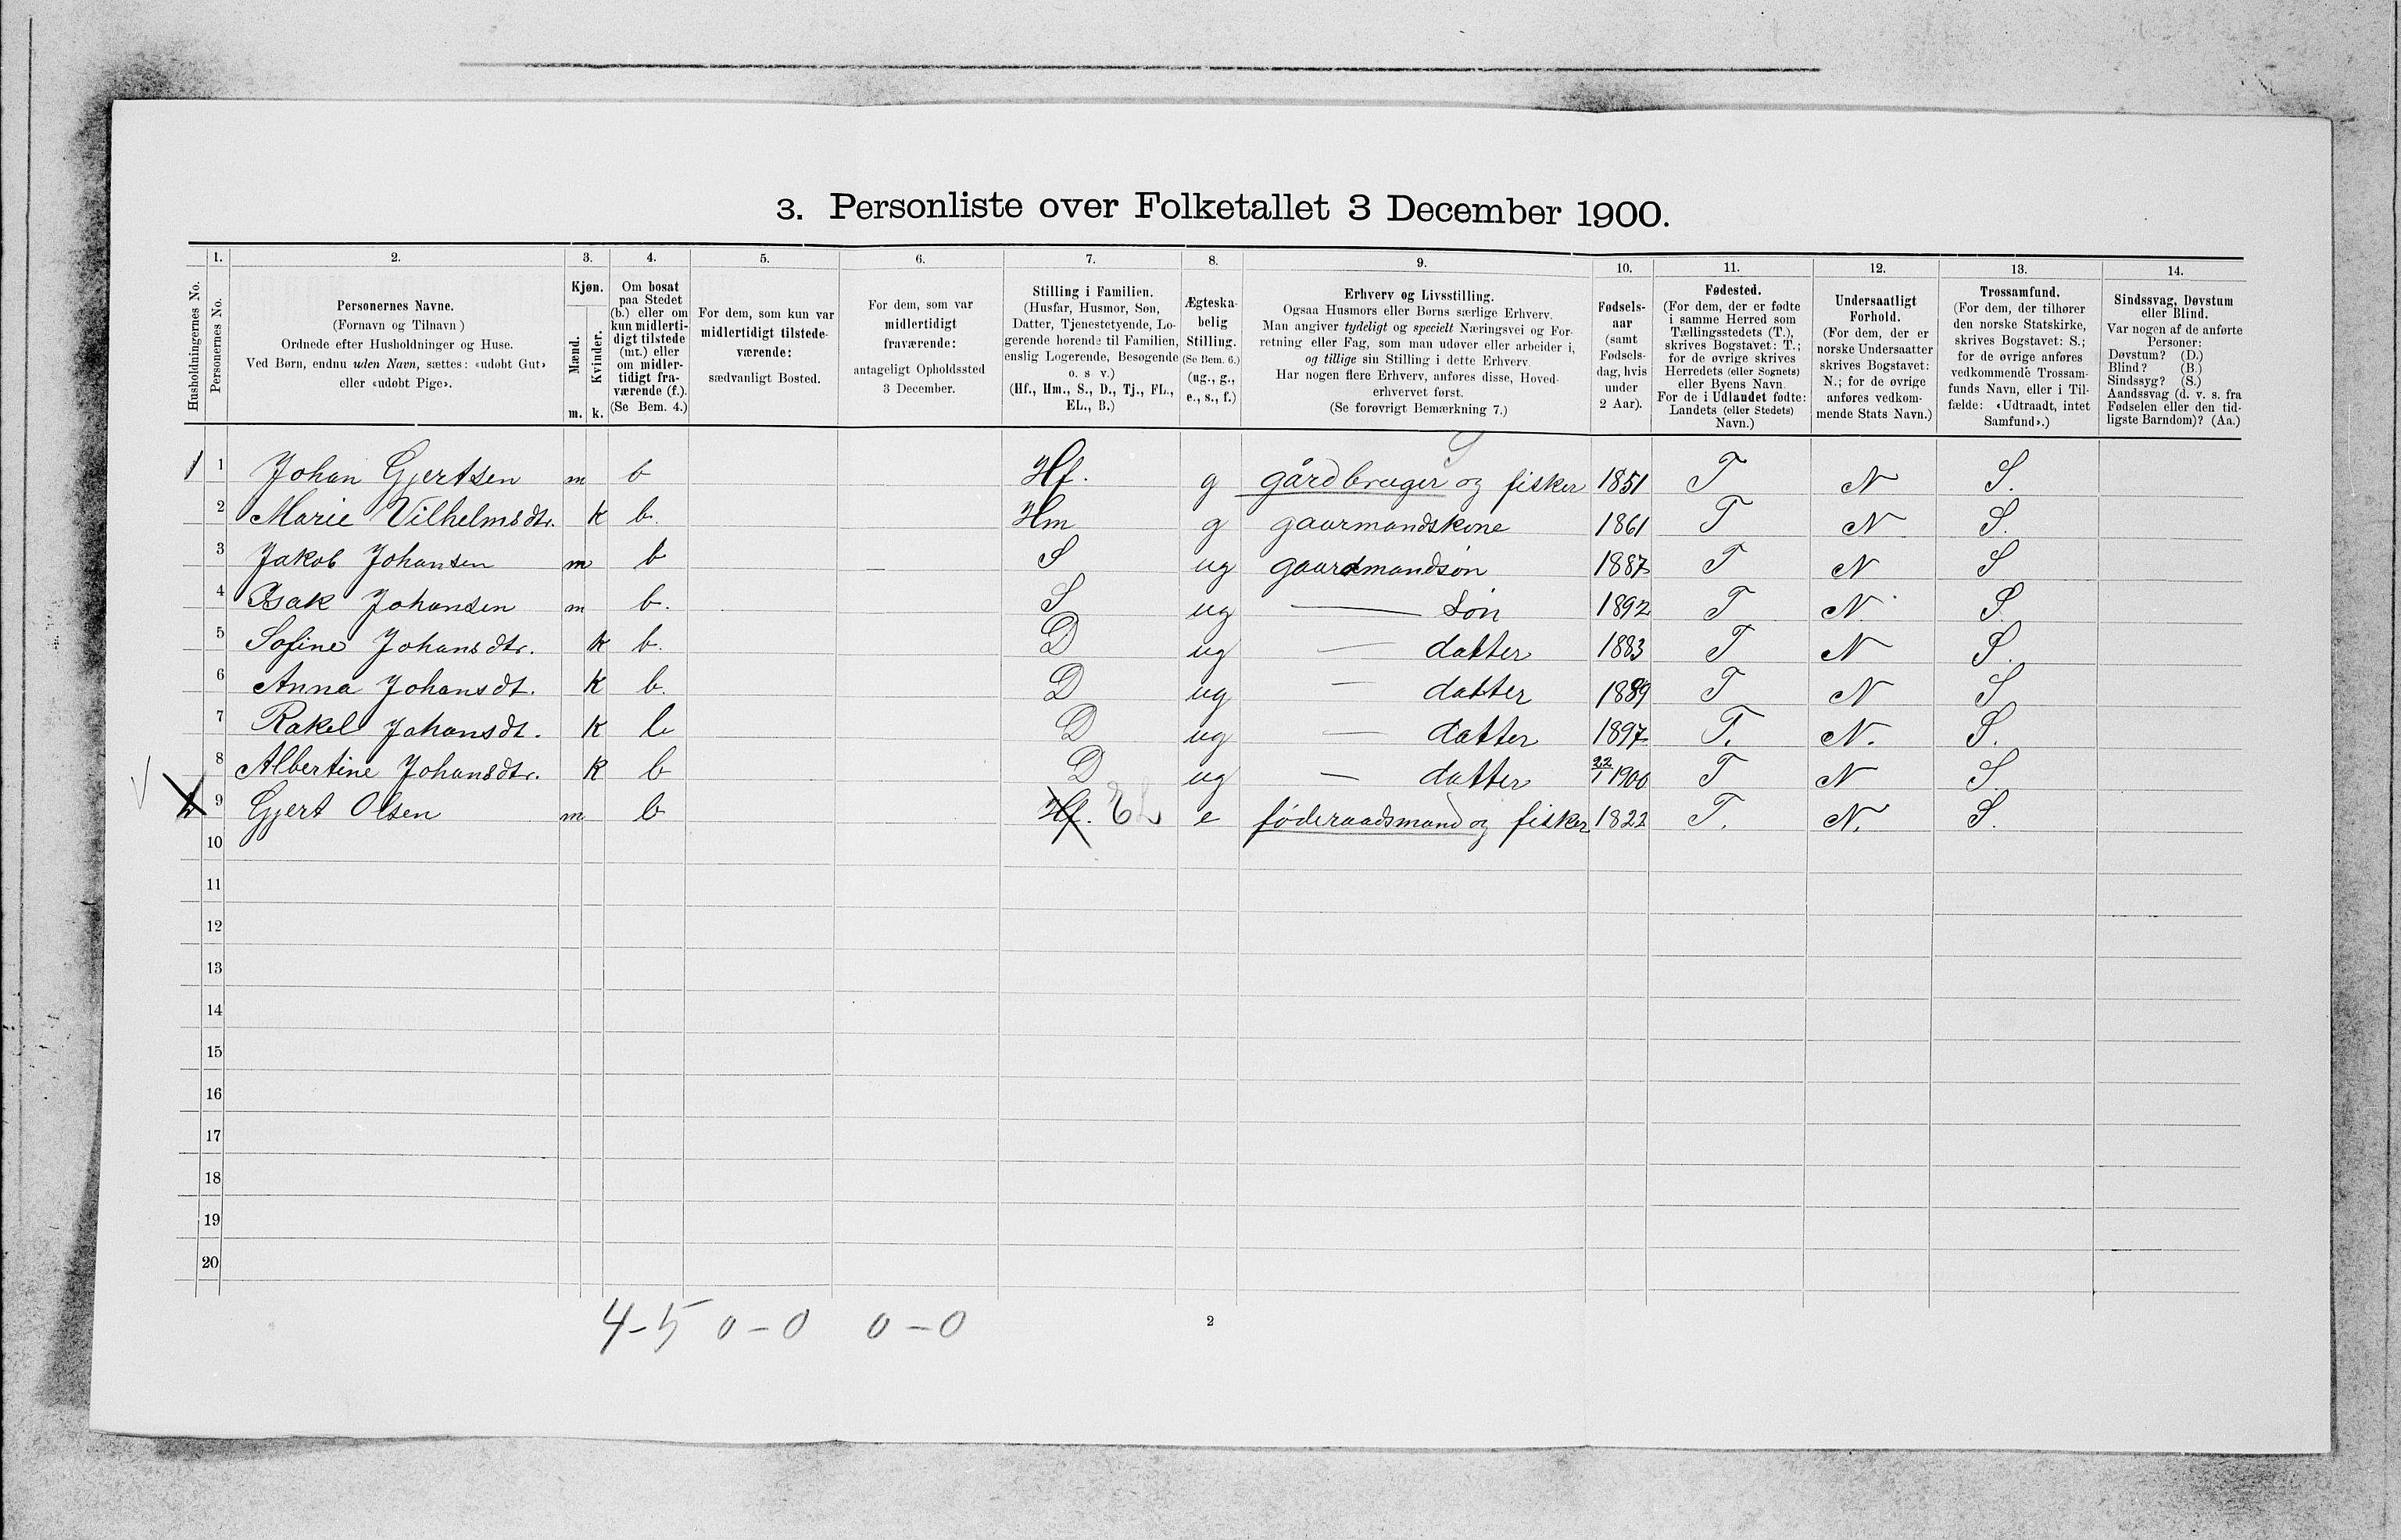 3. Personliste over Folketallet 3 December 1900.
Husholdningernes No.
1.
Personernes No.
2.
Personernes Navne.
(Fornavn og Tilnavn )
Ordnede efter Husholdninger og Huse.
Ved Børn, endnu uden Navn, sættes: «udøbt Gut»
eller «udøbt Pige».
3.
Kjøn.
Mænd.
m.
Kvinder.
k.
4.
Om bosat
paa Stedet
(b.) eller om
kun midlerti-
digt tilstede
(mt.) eller
om midler-
tidigt fra-
værende (f.).
(Se Bem. 4.)
5.
For dem, som kun var
midlertidigt tilstede-
værende:
sædvanligt Bosted.
6.
For dem, som var
midlertidigt
fraværende:
antageligt Opholdssted
3 December.
7.
Stilling i Familien.
(Husfar, Husmor, Søn,
Datter, Tjenestetyende, Lo-
gerende hørende til Familien,
enslig Logerende, Besøgende
o. s v.)
(Hf., Hm., S., D., Tj., FL.,
EL., B.)
8.
Ægteska-
belig
Stilling.
(Se Bem. 6.)
(ug., g.,
e., s., f.)
9.
Erhverv og Livsstilling.
Ogsaa Husmors eller Børns særlige Erhverv.
Man angiver tydeligt og specielt Næringsvei og For-
retning eller Fag, som man udøver eller arbeider i,
og tillige sin Stilling i dette Erhverv.
Har nogen flere Erhverv, anføres disse, Hoved-
erhvervet først.
(Se forøvrigt Bemærkning 7.)
10.
Fødsels-
aar
(samt
Fødsels-
dag, hvis
under
2 Aar).
11.
Fødested.
(For dem, der er fødte
i samme Herred som
Tællingsstedets (T.),
skrives Bogstavet: T.;
for de øvrige skrives
Herredets (eller Sognets)
eller Byens Navn.
For de i Udlandet fødte:
Landets (eller Stedets)
Navn.)
12.
Undersaatligt
Forhold.
(For dem, der er
norske Undersaatter
skrives Bogstavet:
N.; for de øvrige
anføres vedkom-
mende Stats Navn.)
13.
Trossamfund.
(For dem, der tilhører
den norske Statskirke,
skrives Bogstavet: S.;
for de øvrige anføres
vedkommende Trossam-
funds Navn, eller i Til-
fælde: «Udtraadt, intet
Samfund».)
14.
Sindssvag, Døvstum
eller Blind.
Var nogen af de anførte
Personer:
Døvstum? (D.)
Blind? (B.)
Sindssyg? (S.)
Aandssvag (d. v. s. fra
Fødselen eller den tid-
ligste Barndom)? (Aa.)
1 1 Johan Gjertsen m b Hf. g gårdbruger og fisker 1851 T N S.
2 Marie Vilhelmsdtr. k b. Hm g gaurmandskone 1861 T N S.
3 Jakob Johansen m b S ug gaardmandsøn 1887 T N S
4 Isak Johansen m b. S ug — søn 1892 T N. S.
5 Sofine Johansdtr. k b. D ug — datter 1883 T N S.
6 Anna Johansdt. k b. D ug — datter 1889 T N S
7 Rakel Johansdt. k b D ug — datter 1897 T. N. S.
8 Albertine Johansdtr. k b D ug — datter 22/1 1900 T N S
9 Gjert Olsen m b Hf. EL e føderaadsmand og fisker 1822 T. N. S.
10
11
12
13
14
15
16
17
18
19
20
4-5 0-0 0-0
2